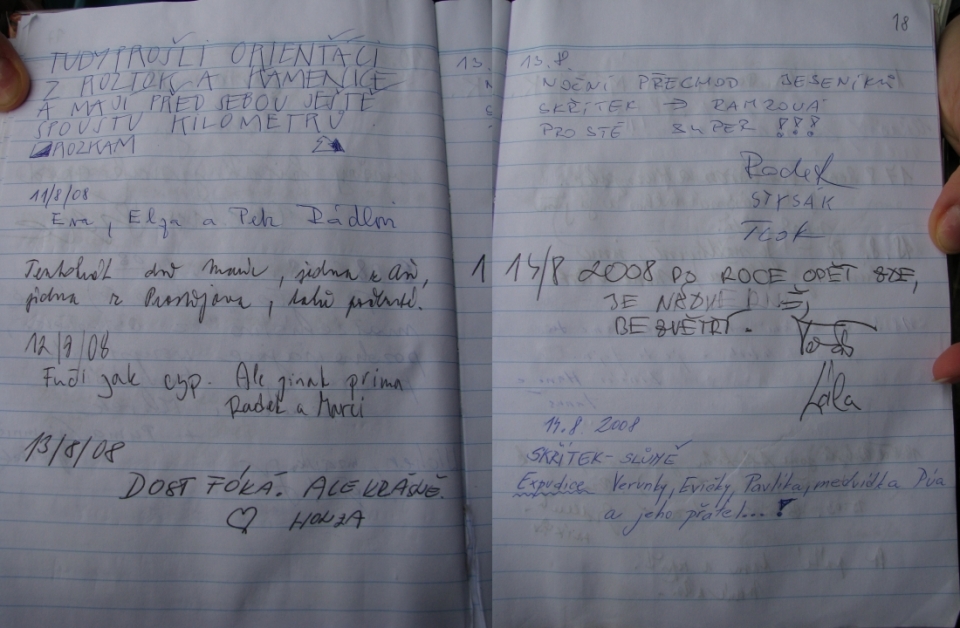 TUDY PROŠLI ORIENŤÁCI
Z ROZTOK A KAMENICE
A MAJI PŘED SEBOU JEŠTĚ
SPOUSTU KILOMETRŮ
ROZKAM
11/8/08
Eva, Elza a Petr Rádlovi
jedna z
jedna z Prostějova,
12/8/08
Fučí jak cyp. Ale jinak prima
Radek a Marci
13/8/08
DOST FÓKÁ. ALE KRÁSNĚ.
HONZA
13.
18
13. 8.
NOČNÍ PŘECHOD JESENÍKŮ
SKŘÍTEK → RAMZOVÁ
PROSTĚ SUPER !!!
Radek
STYSÁK
1 14/8 2008 PO ROCE OPĚT ZDE,
JE NÁDHERNĚ,
BEZVĚTŘÍ.
Lála
14.8. 2008
SKŘÍTEK-
Expedice Verunky, Evičky, Pavlíka, medvídka Púa
a jeho přátel...!